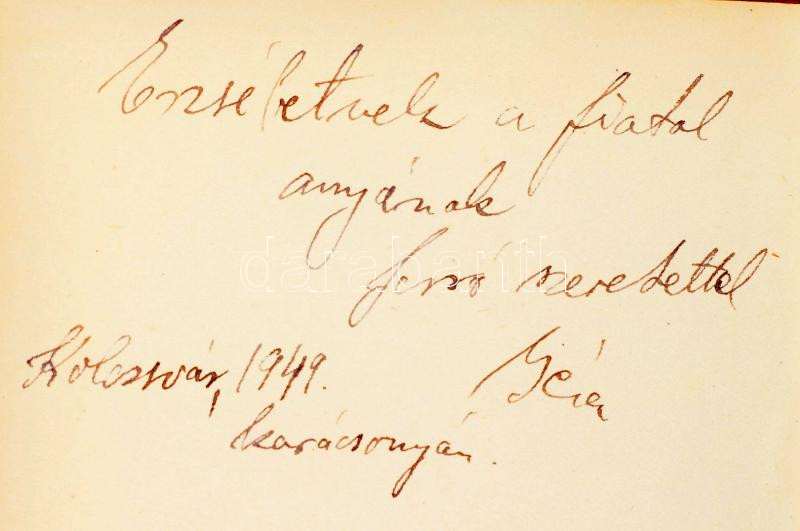 Erzsébetnek a fiatal
anyának
forró szeretettel
Kolozsvár, 1949. Géza
karácsonyán.
darabanth